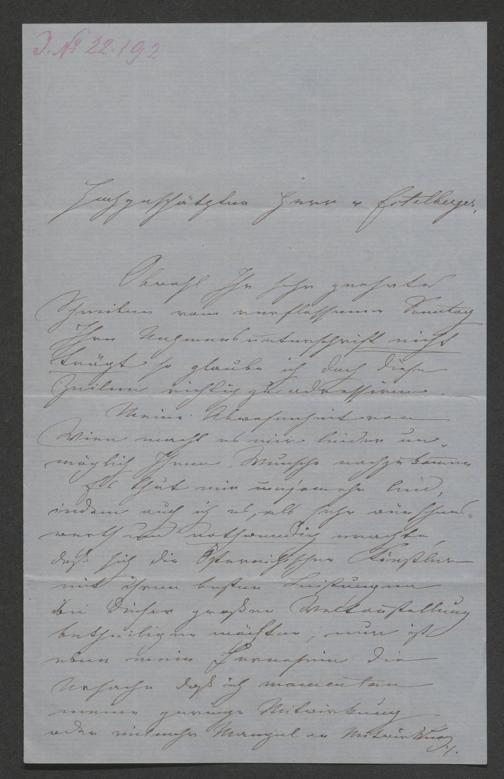 J. No 22.192
Hochgeschätzter Herr v Eitelberger,
Obwohl Ihr sehr geehrtes
Schreiben vom verflossenen Sonntag
Ihre Nahmensunterschrift nicht
trägt so glaube ich doch diese
Zeilen richtig zu adressiren.
Meine Abwesenheit von
Wien macht es mir leider un-
möglich Ihrem Wunsche nachzukommen
Es thut mir umsomehr leid,
indem auch ich es, als sehr wünschens-
werth und nothwendig erachte,
daß sich die Österreichischen Künstler
mit ihren besten Leistungen
bei dieser großen Weltausstellung
betheiligen möchten, nun ist
eben mein Fernesein die
Ursache daß ich momentan
meine geringe Mitwirkung
oder vielmehr Mangel an Mitwirkung